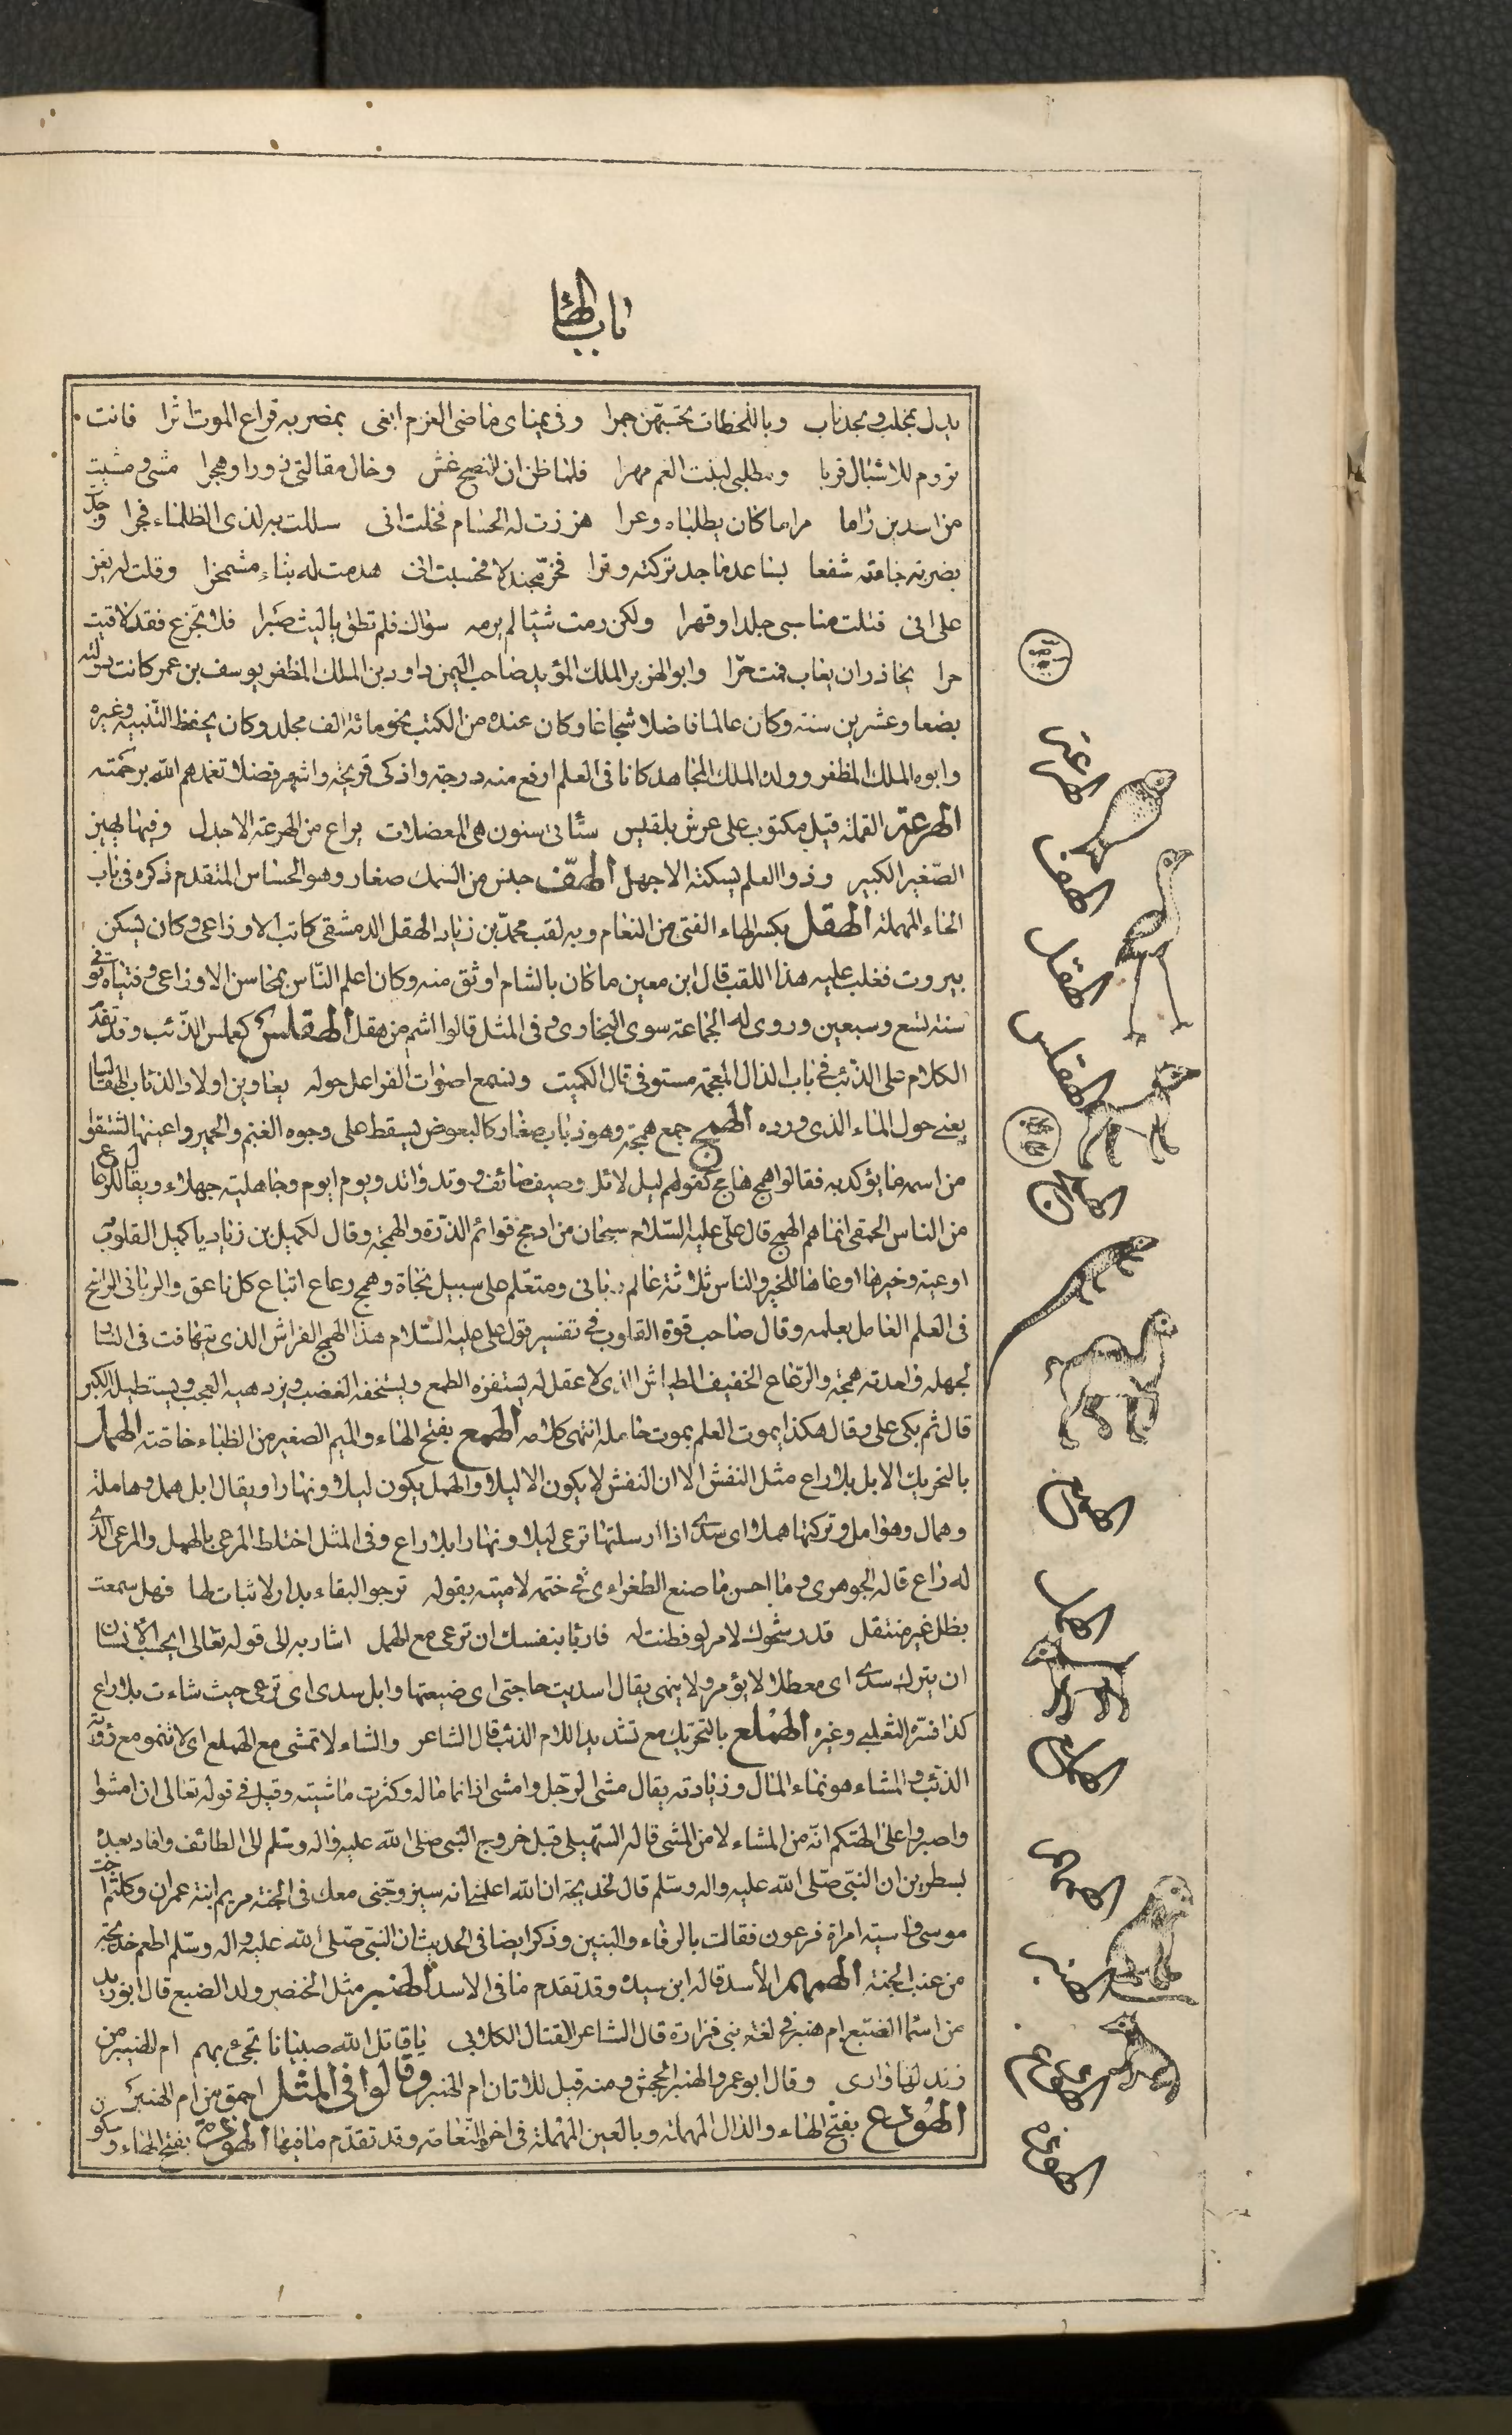 باب الهاء
يدل بمخلب وبحد ناب وباللحظات تحسبهن جمرا وفى يمناى ماضى العزم ابقى بمضربه قراع الموت اثرا فانت
تروم للاشبال قربا ومطلبى لبنت العم مهرا فلما ظن ان النصح غش وخال مقالتى زورا وهجرا مشى ومشيت
من اسدين راما مراما كان يطلباه وعرا هززت له الحسام فخلت انى سللت به لذى الظلماء فجرا وجدت
بضربة جامته شفعا بساعد ماجد تركته وترا فخر مجندلا فحسبت انى هدمت له بناء مشمخرا وقلت له يعز
على انى قتلت مناسبى جلدا وقهرا ولكن رمت شيئا لم يرمه سواك فلم تطق يا ليث صبرا فلا تجزع فقد لاقيت
حرا يحاذر ان يعاب فمت حرا وابو الهزبر الملك المؤيد صاحب اليمن داود بن الملك المظفر يوسف بن عمر كانت دولته
بضعا وعشرين سنة وكان عالما فاضلا شجاعا وكان عنده من الكتب نحو مائة الف مجلد وكان يحفظ التنبيه وغيره
وابوه الملك المظفر وولده الملك المجاهد كانا فى العلم ارفع منه درجة واذكى قريحة واشهر فضلا تغمدهم الله برحمته
الهرعة القملة قيل مكتوب على عرش بلقيس ستأتى سنون هى المعضلات يراع من الهرعة الاجدل وفيها يهين
الصغير الكبير وذوا العلم يسكته الاجهل الهف جنس من السمك صغار وهو الحساس المتقدم ذكره فى باب
الحاء المهملة الهقل بكسر الهاء الفتى من النعام وبه لقب محمد بن زياد الهقل الدمشقى كاتب الاوزاعى وكان يسكن
بيروت فغلب عليه هذا اللقب قال ابن معين ما كان بالشام اوثق منه وكان اعلم الناس بمجالس الاوزاعى وفتياه توفى
سنة تسع وسبعين وروى له الجماعة سوى البخارى وفى المثل قالوا اشم من هقل الهقلس كعملس الذئب وقد تقدم
الكلام على الذئب فى باب الذال المعجمة مستوفى قال الكميت وتسمع اصوات الفراعل حوله يعاوين اولاد الذئاب الهقالسا
يعنى حول الماء الذى ورده الهمج جمع همجة وهو ذباب صغار كالبعوض يسقط على وجوه الغنم والحمير واعينها اشتقوا
من اسمه ما يؤكد به فقالوا همج هامج كقولهم ليل لائل وصيف صائف ووتد واتد ويوم ايوم وجاهلية جهلاء ويقال للرعاع
من الناس الحمقى انما هم الهمج قال على عليه السلام سبحان من ادمج قوائم الذرة والهمجة وقال لكميل بن زياد يا كميل القلوب
اوعية وخيرها اوعاها للخير والناس ثلاثة عالم ربانى ومتعلم على سبيل نجاة وهمج رعاع اتباع كل ناعق والربانى الراسخ
فى العلم العامل بعلمه وقال صاحب قوة القلوب فى تفسير قول على عليه السلام هذا الهمج الفراش الذى يتهافت فى النار
لجهله واحدته همجة والرعاع الخفيف الطياش الذى لا عقل له يستفزه الطمع ويستخفه الغضب ويزدهيه العجب ويستطيله الكبر
قال ثم بكى على وقال هكذا يموت العلم بموت حامله انتهى كلامه الهمع بفتح الهاء والميم الصغير من الظباء خاصة الهمل
بالتحريك الابل بلا راع مثل النفش الا ان النفش لا يكون الا ليلا والهمل يكون ليلا ونهارا ويقال ابل همل وهاملة
وهمال وهوامل وتركتها هملا اى سدى اذا ارسلتها ترعى ليلا ونهارا بلا راع وفى المثل اختلط المرعى بالهمل والمرعى الذى
له راع قاله الجوهرى وما احسن ما صنع الطغراءى فى ختم لاميته بقوله ترجو البقاء بدار لا ثبات لها فهل سمعت
بظل غير منتقل قد رشحوك لامر لو فطنت له فاربأ بنفسك ان ترعى مع الهمل اشار به الى قوله تعالى ايحسب الانسان
ان يترك سدى اى معطلا لا يؤمر ولا ينهى يقال اسديت حاجتى اى ضيعتها وابل سدى اى ترعى حيث شاءت بلا راع
كذا فسره الثعلبى وغيره الهملع بالتحريك مع تشديد اللام الذئب قال الشاعر والشاء لا تمشى مع الهملع اى لا تنمو مع رؤية
الذئب والمشاء هو نماء المال وزيادته يقال مشى الرجل وامشى اذا نما ماله وكثرت ماشيته وقيل فى قوله تعالى ان امشوا
واصبروا على الهتكم انه من المشاء لا من المشى قاله السهيلى قبل خروج النبى صلى الله عليه واله وسلم الى الطائف وافاد بعده
بسطرين ان النبى صلى الله عليه واله وسلم قال لخديجة ان الله اعلمنى انه سيزوجنى معك فى الجنة مريم ابنة عمران وكلثم اخت
موسى واسية امراة فرعون فقالت بالرفاء والبنين وذكر ايضا فى الحديث ان النبى صلى الله عليه واله وسلم اطعم خديجة
من عنب الجنة الهمهم الأسد قاله ابن سيده وقد تقدم ما فى الاسد الهنبر مثل الخنصر ولد الضبع قال ابو زيد
من اسماء الضبع ام هنبر فى لغة بنى فزارة قال الشاعر القتال الكلابى يا قاتل الله صبيانا تجىء بهم ام الهنيبر من
زند لها وارى وقال ابو عمرو الهنبر الجحش ومنه قيل للاتان ام الهنبر وقالوا فى المثل احمق من ام الهنبر
الهودع بفتح الهاء والدال المهملة وبالعين المهملة فى اخره النعامة وقد تقدم ما فيها الهوذة بفتح الهاء وسكون
الهرعة
الهف
الهقل
الهقلس
الهمج
الهمع
الهمل
الهملع
الهمهم
الهنبر
الهودع
الهوذة